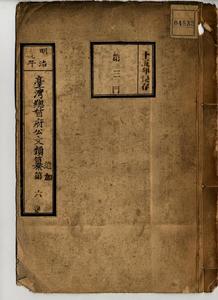 十五年保存
第三門
明治
臺灣總督府公文類纂
追加
第六